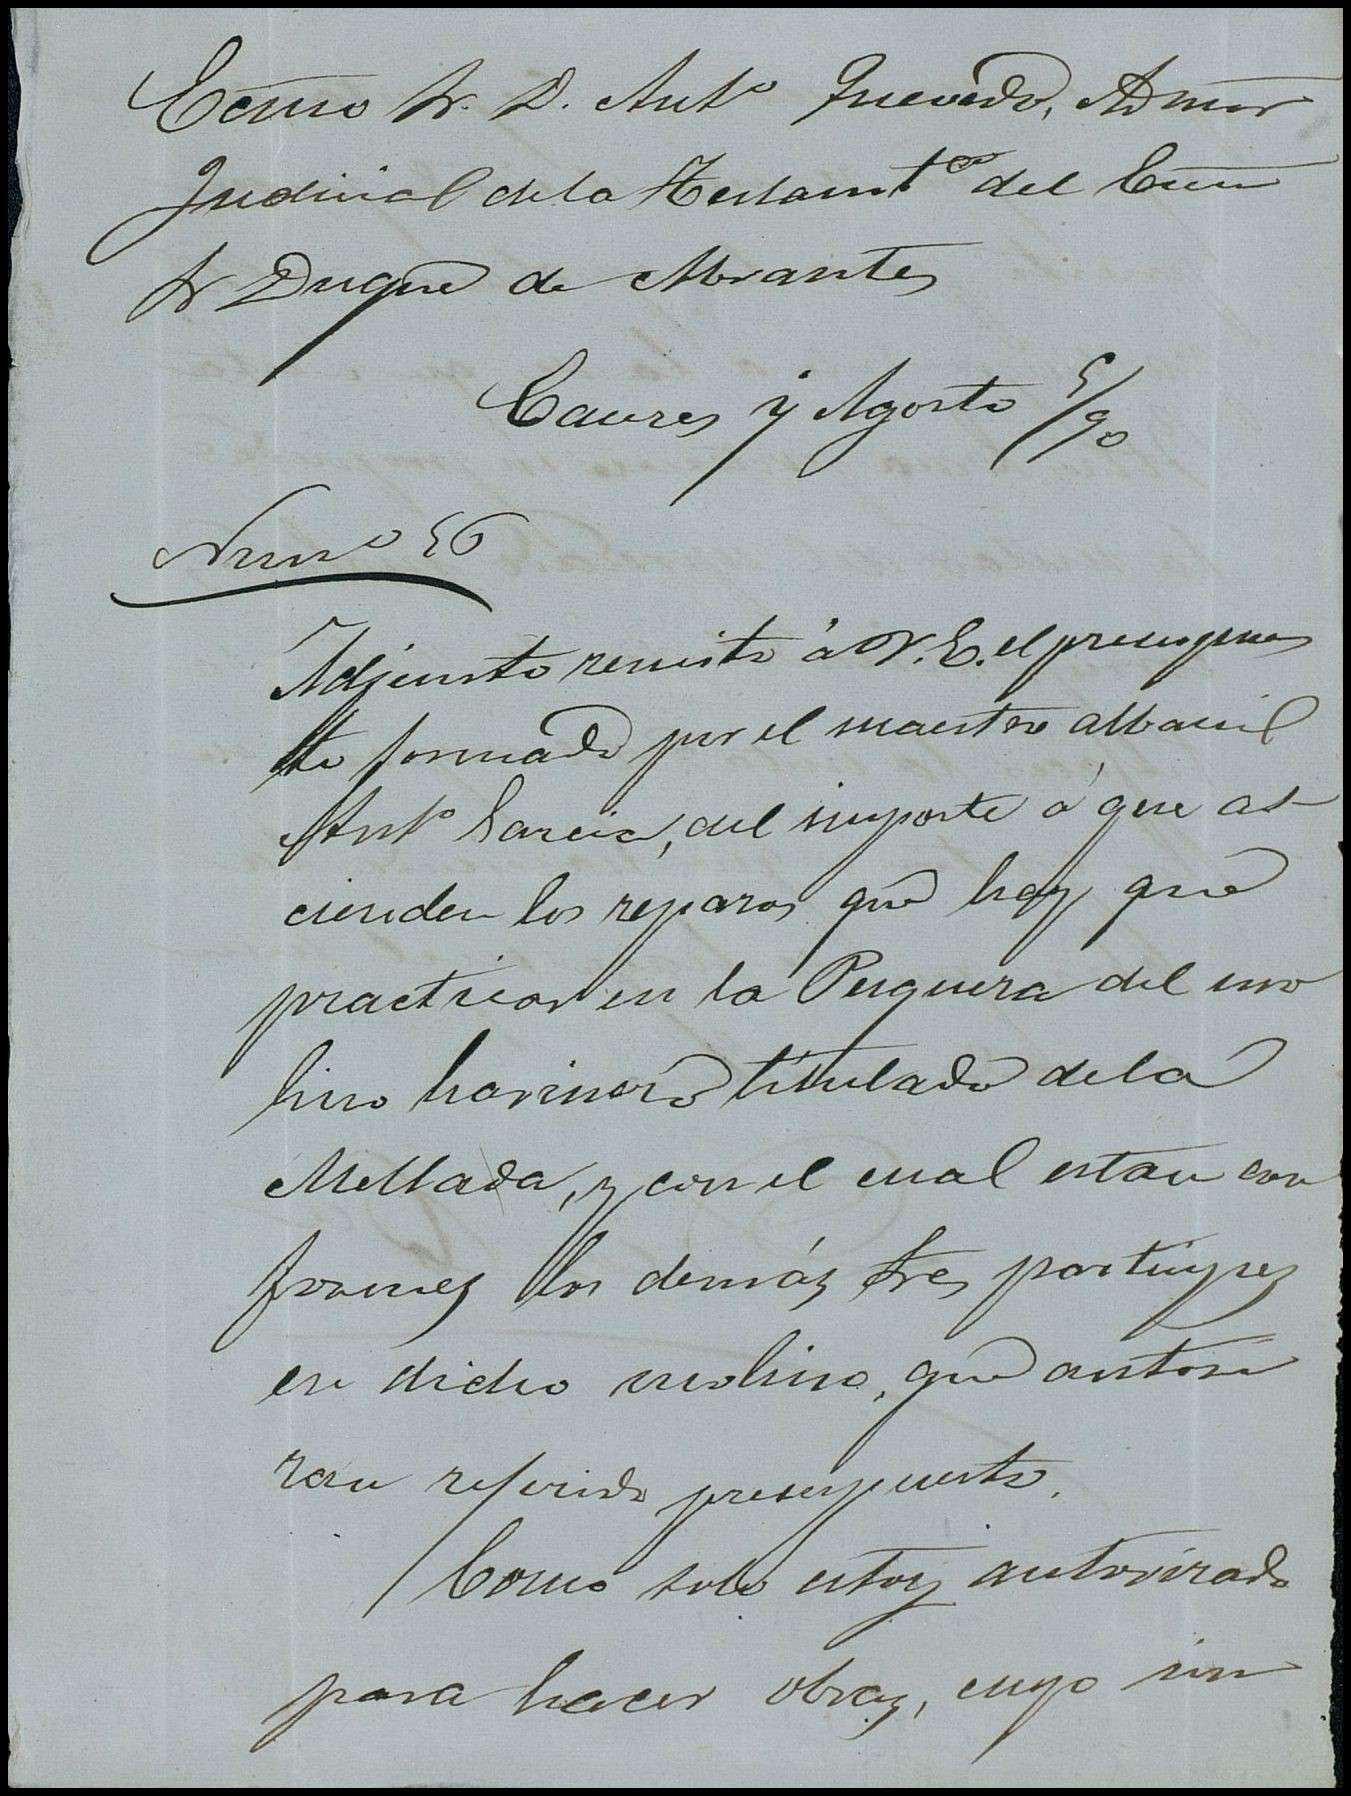 Ecmo Sr. D. Antº Quevedo, Admor
Judicial de la Testamtª del Ecmo
Sr Duque de Abrantes
Caceres y Agosto 5/90
Numº 56
Adjunto remito á V. E. el presupues
to formado por el maestro albañil
Antº Garcia, del importe á que as
cienden los reparos que hay que
practicar en la Pesquera del mo
lino harinero titulado de la
Mellada, y con el cual estan con
formes los demás tres participes
en dicho molino, que autori
zan referido presupuesto.
Como solo estoy autorizado
para hacer obras, cuyo im